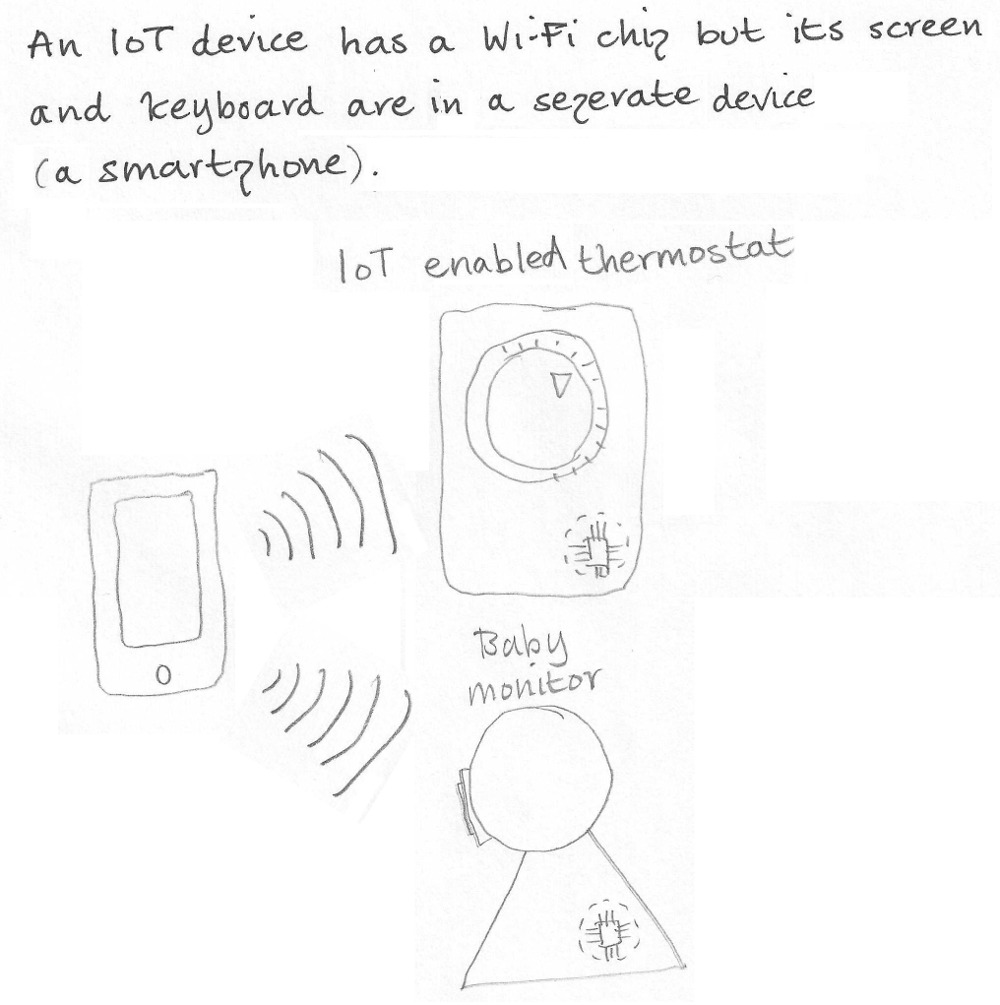 An IoT device has a Wi-Fi chip but its screen
and keyboard are in a seperate device
(a smartphone).
IoT enabled thermostat
Baby
monitor